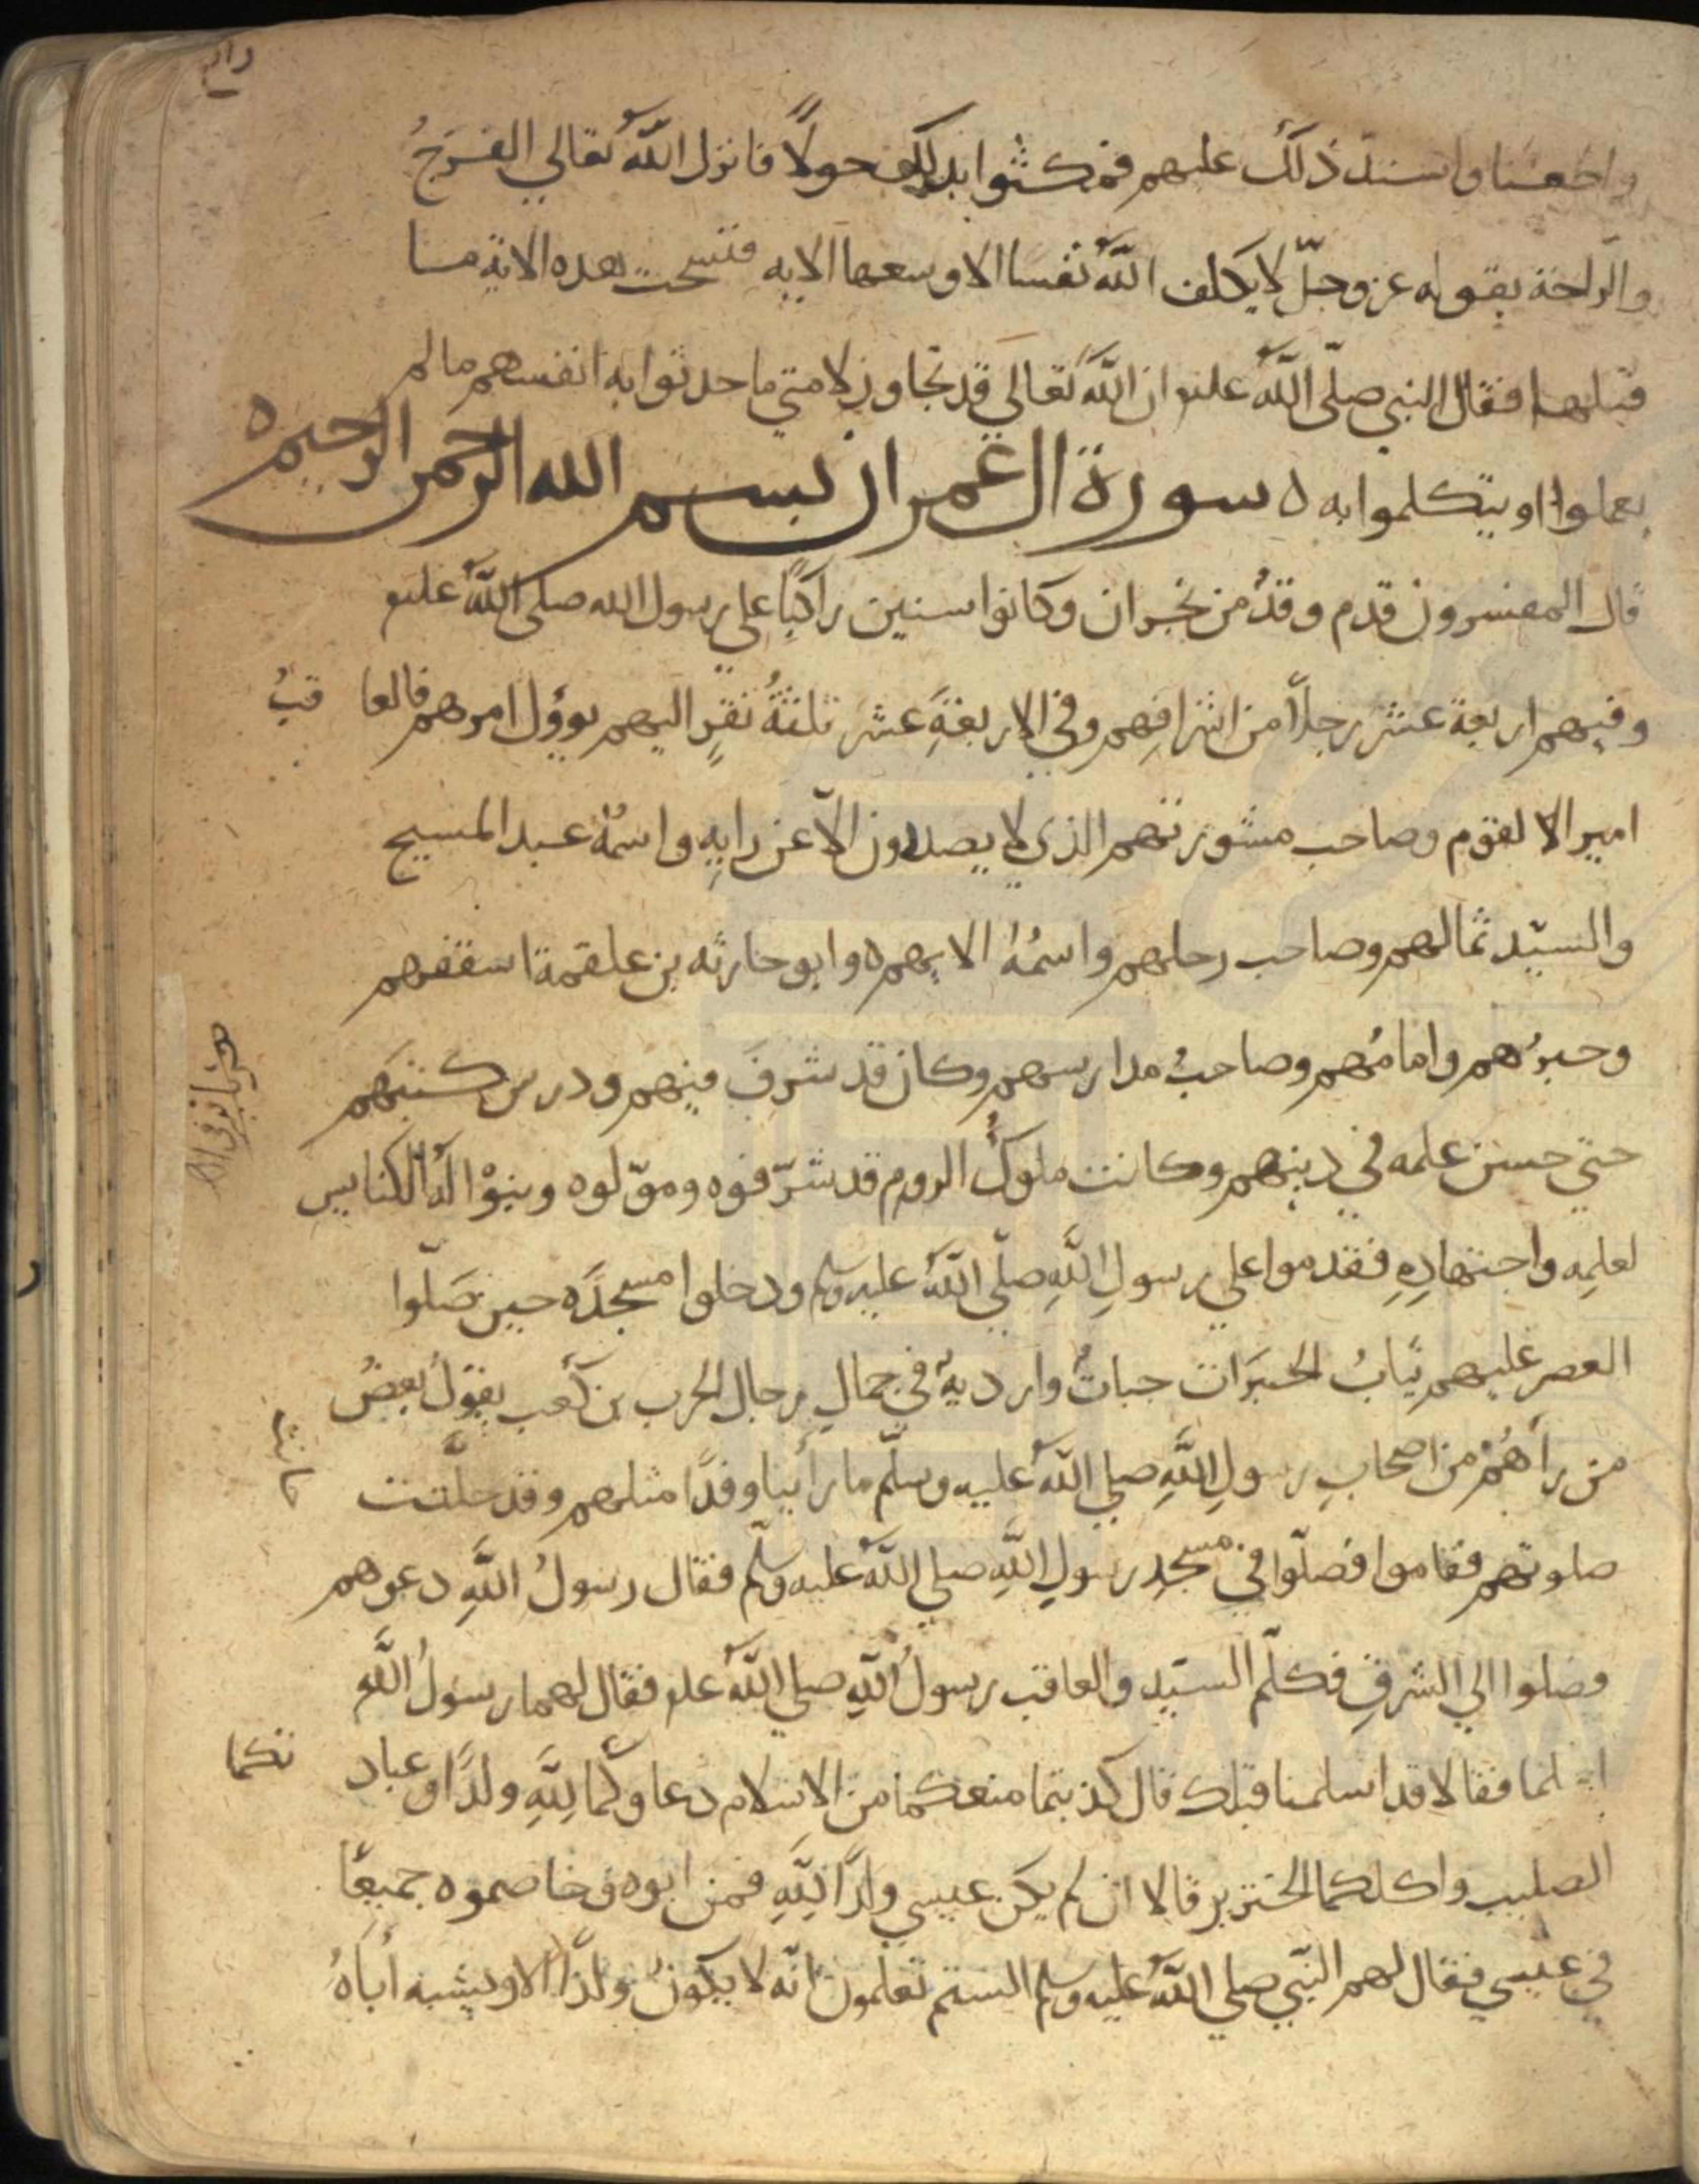 واطعنا واشتد ذلك عليهم فمكثوا بذلك حولاً فانزل الله تعالي الفرجُ
والراحة بقوله عز وجلّ لا يكلف الله نفسا الا وسعها الايه فنسخت هذه الاية ما
قبلها فقال النبي صلّى الله عليه ان الله تعالى قد تجاوز لامتي ما حدثوا به انفسهم ما لم
يعملوا او يتكلموا به ه سورة ال عمران بسم الله الرحمن الرحيم ه
قال المفسرون قدم وفدُ من نجران وكانوا ستين راكبًا علي رسول الله صلى الله عليه
وفيهم اربعة عشر رجلاً من اشرافِهم وفي الاربعةَ عشر ثلثةُ نفرٍ اليهم يوؤل امرهم فالعاقبُ
امير الا لقوم وصاحب مشورتهم الذي لا يصدرون الاّ عن رايهِ واسمهُ عبد المسيح
والسيّد ثمالهم وصاحب رحلهم واسمُهُ الايهم ه وابو حارثه بن علقمة اسقفهم
وحبرُهم وامامُهم وصاحبُ مدارسهم وكان قد شرفَ فيهم ودرس كتبَهم
حتي حسن علمه في دينهم وكانت ملوكُ الروم قد شرّفوه وموّلوه وبنوْا لهُ الكنايس
لعلمِه واجتهادِهِ فقدموا علي رسولِ اللهِ صلّي اللهُ عليه وسلم ودخلوا مسجدَه حين صَلّوا
العصر عليهم ثيابُ الحبَرَات جباتُ وارديةُ في جمالِ رجال الحرب بن كَعب يقولُ بعضُ
من رآهُمْ من اصحابِ رسولِ اللهِ صلي الله عليه وسلّم ما رأينا وفدًا مثلهم وقد حانت
صلوتهم فقاموا فصلّوا في مسجدِ رسولِ اللهِ صلي الله عليه وسلّم فقال رسولُ اللهِ دعوهم
فصلوا الي الشرقِ فكلّم السيّد والعاقب رسولُ اللهِ صلي الله عليه فقال لهما رسولُ اللهِ
اسلما فقالا قد اسلمنا قبلك قال كذبتما منعكما من الاسلام دعاوكما لِلَّهِ ولدًا وعبادتكما
الصليب واكلكما الخنزير قالا ان لم يكن عيسي ولدًا لِلَّهِ فمن ابوه وخاصموه جميعًا
في عيسي فقال لهم النّبي صلي الله عليه وسلم الستم تعلمون انّه لا يكونُ ولدًا الا ويشبه أباهُ